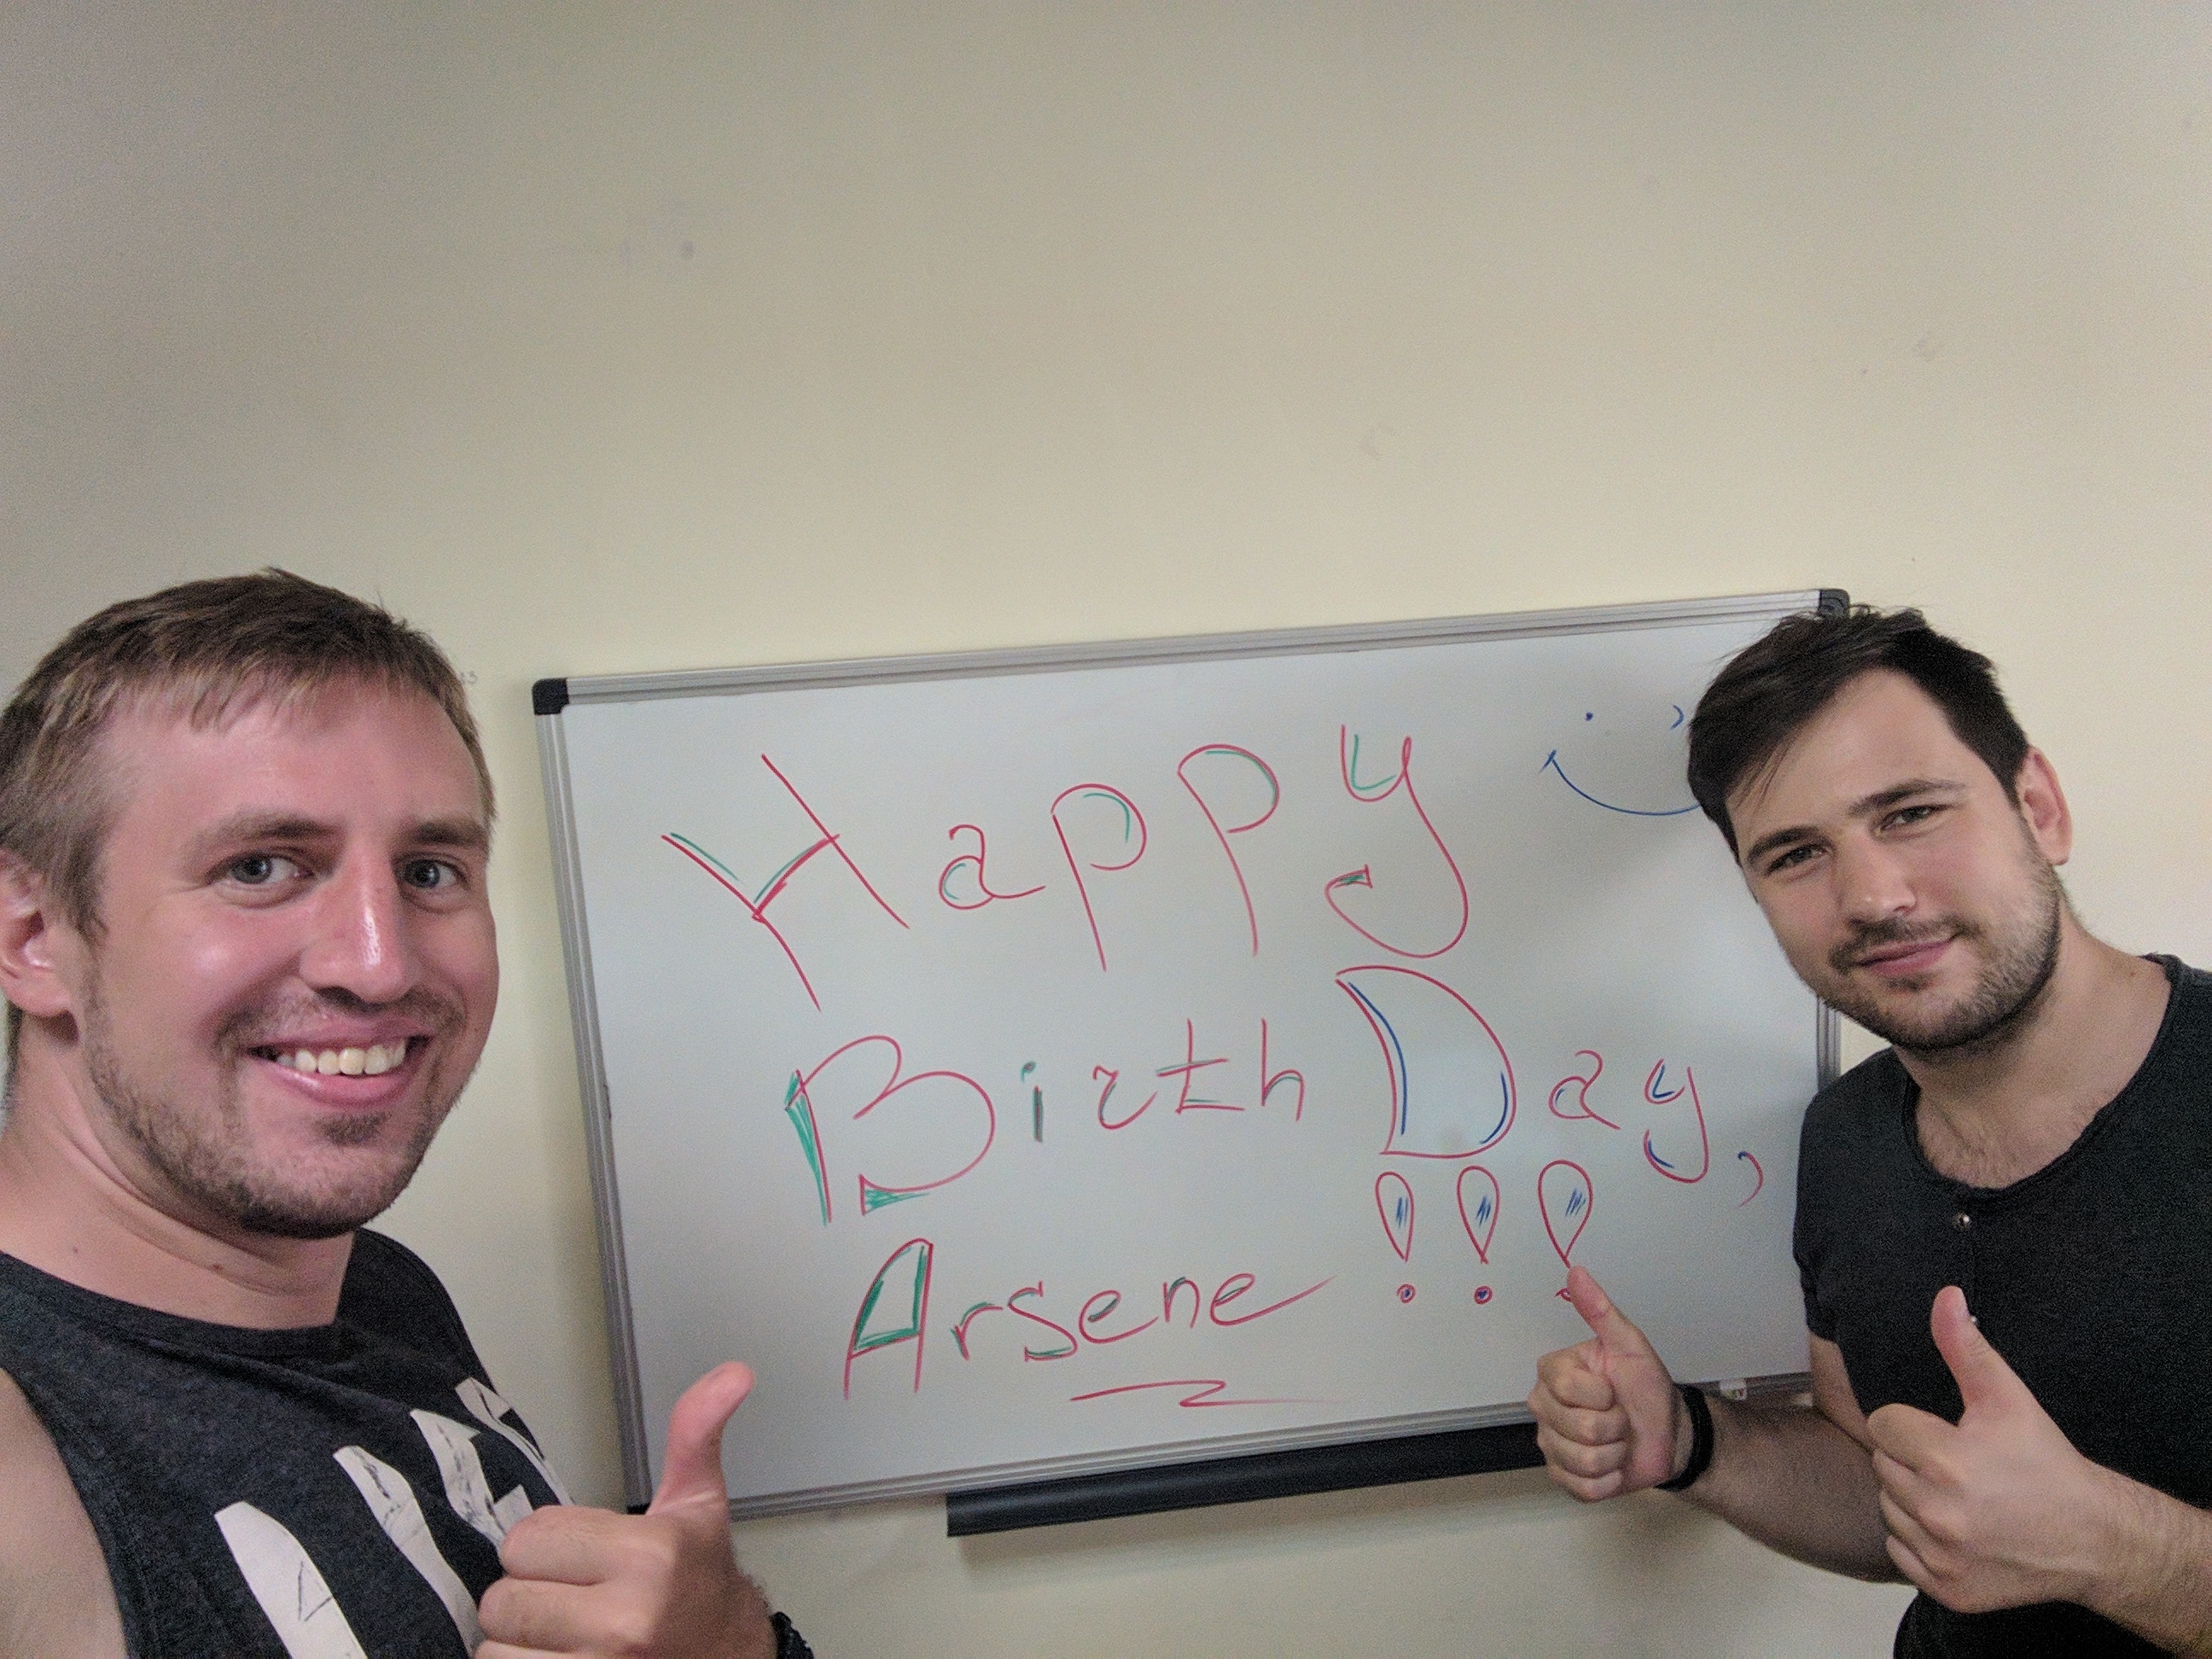 Happy
BirthDay,
Arsene !!!